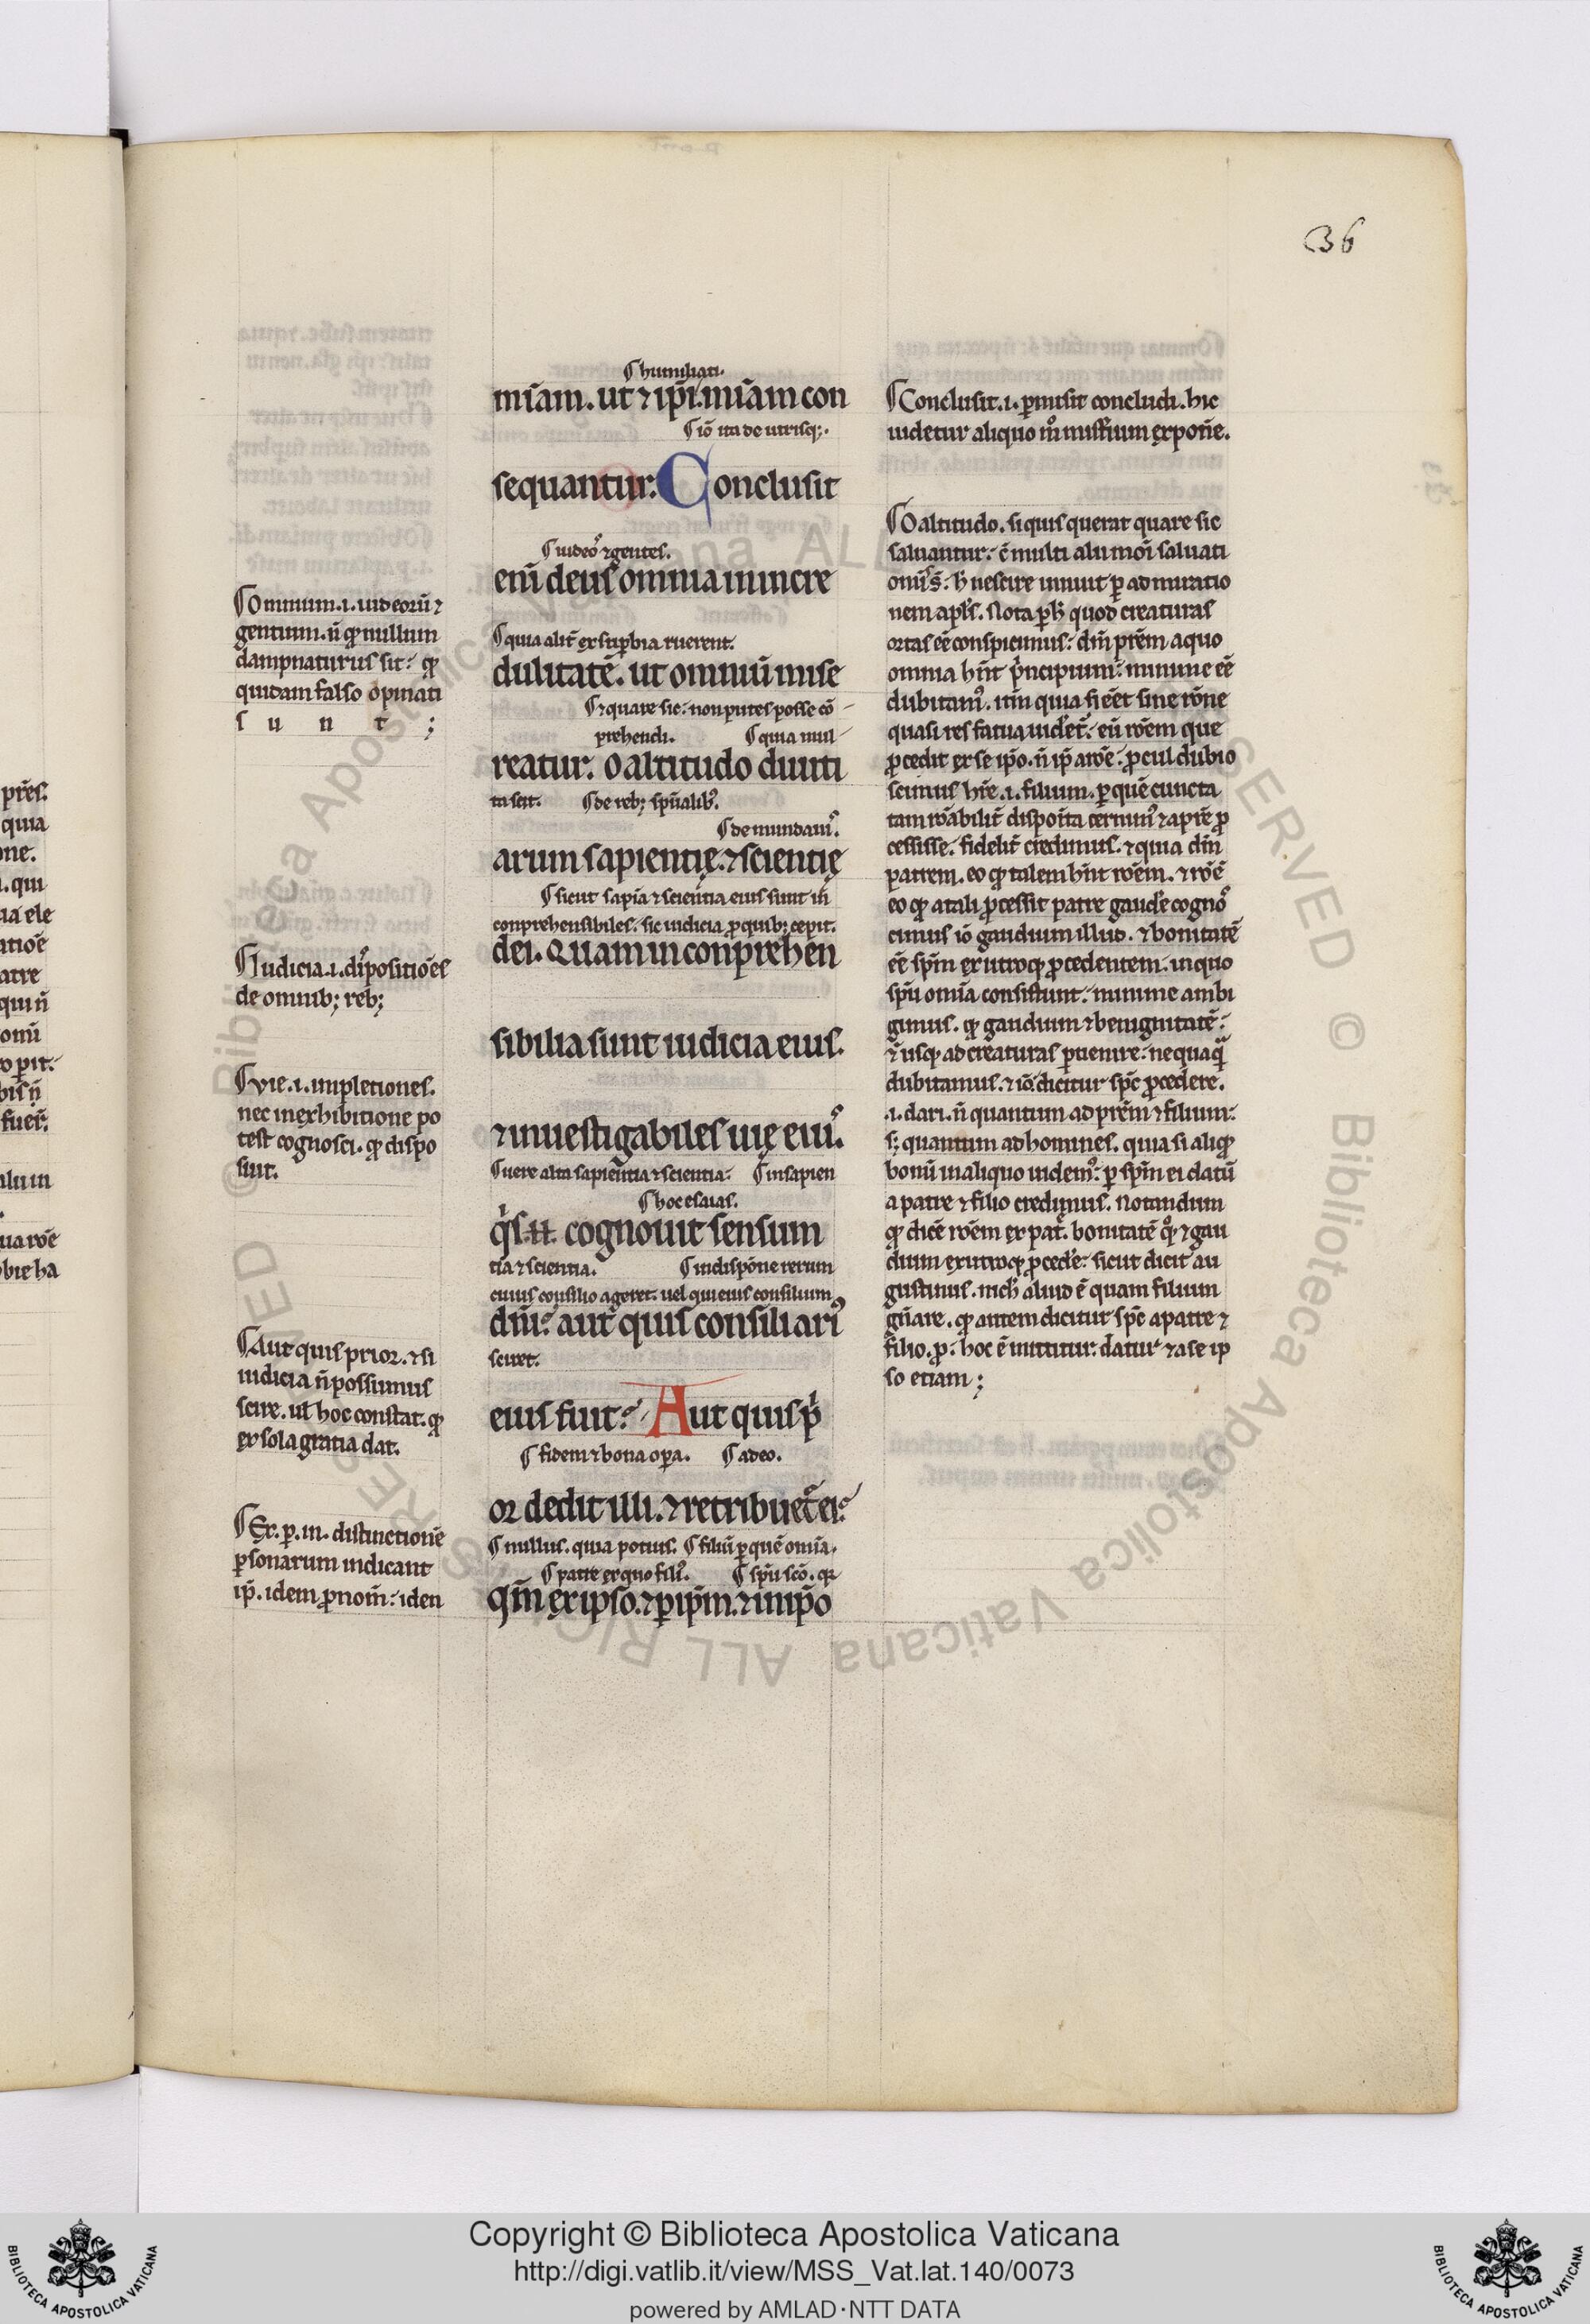 36
¶ humiliati.
mīam. ut ⁊ ip̄i. mīam con
¶ iō ita de utrisq;.
sequantur. Conclusit
¶ iudeos ⁊ gentes.
eni deus omnia in incre
¶ quia alit̄ ex supbia ruerent.
dulitatē. ut omniū mise
¶ ⁊ quare sic. non putes posse cō
prehendi. ¶ quia mul
reatur. O altitudo diuiti
ta scit. ¶ de reb; sp̄ualib;.
¶ de mundanis.
arum sapientię. ⁊ scientię
¶ sicut sapīa ⁊ scientia eius sunt in
conprehensibiles. sic iudicia pro quib; cepit.
dei. Quam inconprehen
sibilia sunt iudicia eius.
⁊ inuestigabiles uię eius.
¶ uere alta sapientia ⁊ scientia. ¶ in sapien
¶ hoc esaias.
q's .n. cognouit sensum
tīa ⁊ scientia. ¶ in dispōne rerum
cuius consilio ageret. uel qui eius consilium
dn̄i. aut quis consiliari'
sciret.
eius fuit. Aut quis p'
¶ fidem ⁊ bona opa. ¶ a deo.
or dedit illi. ⁊ retribuet̄ ei.
¶ nullus. quia potius. ¶ filiū p quē omīa.
¶ patre ex quo filius. ¶ sp̄u scō. qr
qm̄ ex ipso. ⁊ p ip̄m. ⁊ in ip̄o
¶ Omnium .i. iudeorū ⁊
gentium. n̄ qd nullum
dampnaturus sit. qd
quidam falso opinati
sunt;
¶ Iudicia .i. dispositiōes
de omnib; reb;
¶ Vie .i. impletiones.
nec in exhibitione po
test cognosci. qd dispo
suit.
¶ Aut quis prior. ⁊ si
iudicia n̄ possumus
scire. ul hoc constat. qd
ex sola gratia dat.
¶ Ex. p. in. distinctionē
psonarum indicant
ip̄. idem pnom̄. iden
¶ Conclusit .i. pmisit concludi. hic
uidetur aliquo mō missium exponē.
¶ O altitudo. si quis querat quare sic
saluantur. ē multi alii modi saluati
nem apl's. Nota p h' quod creaturas
ortas eē conspicimus. dm̄ prēm a quo
omnia hn̄t principium. minime eē
dubitam'. itm̄ quia si eēt sine rōne
quasi res fatua uidet̄. eū rōem que
pcedit ex se ip̄o. n̄ ip̄a rōe. pcul dubio
scimus hr̄e .i. filium. p quē cuncta
tam rōabilit̄ disposita cernim' ⁊ a pr̄e p
cessisse. fidelit̄ credimus. ⁊ quia dm̄
patrem. eo qd talem hn̄t rōem. ⁊ rōē
eo qd a tali pcessit patre gaudere cogno
cimus iō gaudium illud. ⁊ bonitatē
eē sp̄m ex utroq pcedentem. in quo
sp̄u omīa consistunt. minime ambi
gimus. qd gaudium ⁊ benignitatē.
⁊ usq ad creaturas puenire. nequaq̄
dubitamus. ⁊ iō dicitur sp̄c pcedere.
.i. dari. n̄ quantum ad prēm ⁊ filium.
s; quantum ad homines. quia si aliqd
bonū in aliquo uidem'. p sp̄m ei datū
a patre ⁊ filio credimus. Notandum
qd dicē rōem ex pat̄. bonitatē quoq ⁊ gau
dium ex utroq pcedere. sicut dicit au
gustinus. nich' aliud ē quam filium
gn̄are. qd autem dicitur sp̄c a patre ⁊
filio. p. hoc ē mittitur. datur ⁊ a se ip
so etiam;
Copyright © Biblioteca Apostolica Vaticana
http://digi.vatlib.it/view/MSS_Vat.lat.140/0073
powered by AMLAD·NTT DATA
BIBLIOTECA APOSTOLICA VATICANA
BIBLIOTECA APOSTOLICA VATICANA